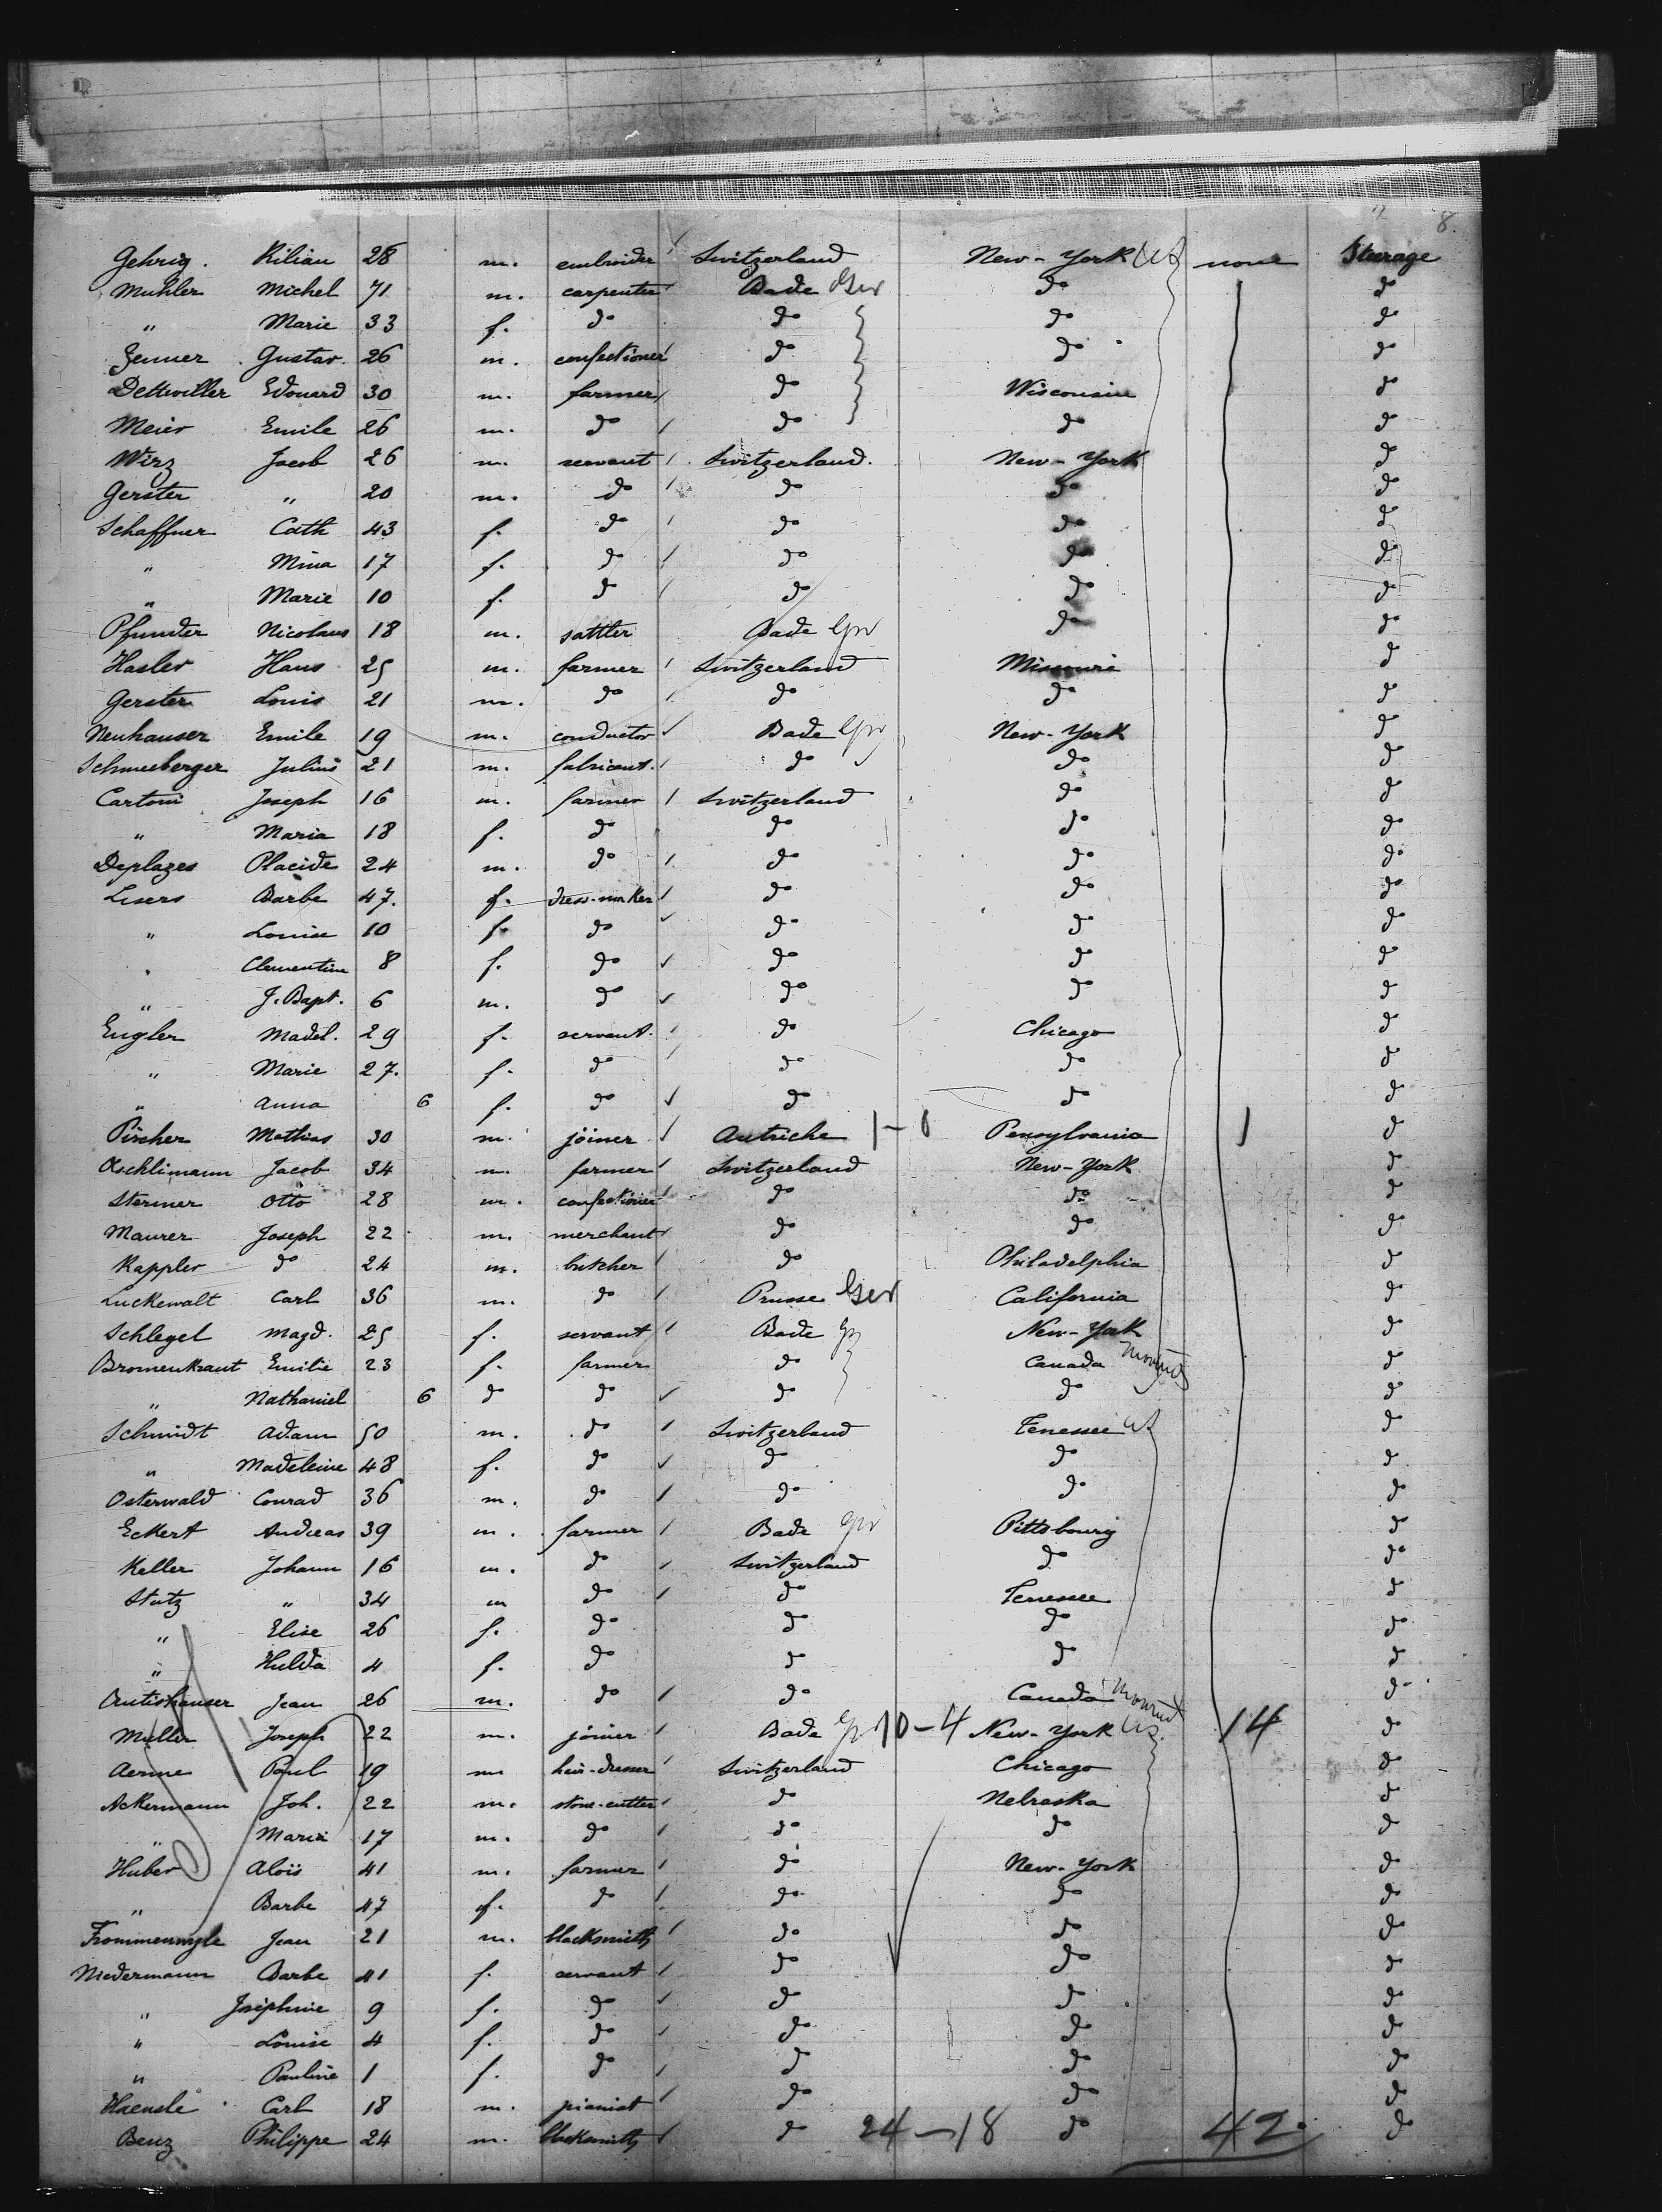 8.
Gehrig. Kilian 28 m. embroider Switzerland New-York US none Steerage
Muhler Michel 71 m. carpenter Bade Ger do do
" Marie 33 f. do do do do
Genner Gustav. 26 m. confectioner do do do
Dettwiller Edouard 30 m. farmer do Wisconsin do
Meier Emile 26 m. do do do do
Wirz Jacob 26 m. servant Switzerland. New-York do
Gerster " 20 m. do do do do
Schaffner Cath 43 f. do do do do
" Mina 17 f. do do do do
" Marie 10 f. do do do do
Pfunder Nicolaus 18 m. sattler Bade Ger do do
Hasler Hans 25 m. farmer Switzerland Missouri do
Gerster Louis 21 m. do do do do
Neuhauser Emile 19 m. conductor Bade Ger New-York do
Schneeberger Julius 21 m. fabricant. do do do
Cartoni Joseph 16 m. farmer Switzerland do do
" Maria 18 f. do do do do
Deplazes Placide 24 m. do do do do
Lisers Barbe 47. f. dress-maker do do do
" Louise 10 f. do do do do
" Clementine 8 f. do do do do
" J. Bapt. 6 m. do do do do
Engler Madel. 29 f. servant. do Chicago do
" Marie 27. f. do do do do
" Anna 6 f. do do do do
Pircher Mathias 30 m. joiner Autriche 1-0 Pensylvania 1 do
Aeschlimann Jacob 34 m. farmer Switzerland New-York do
Sterner Otto 28 m. confectioner do do do
Maurer Joseph 22 m. merchant do do do
Kappler do 24 m. butcher do Philadelphia do
Luckewalt Carl 36 m. do Prusse Ger California do
Schlegel Magd. 25 f. servant Bade Ger New-York do
Bromenkraut Emilie 23 f. farmer do Canada do
" Nathaniel 6 do do do do do
Schmidt Adam 50 m. do Switzerland Tenessee US do
" Madeleine 48 f. do do do do
Osterwald Conrad 36 m. do do do do
Eckert Andreas 39 m. farmer Bade Ger Pittsbourg do
Keller Johann 16 m. do Switzerland do do
Stutz " 34 m do do Tenessee do
" Elise 26 f. do do do do
" Hulda 4 f. do do do do
Autishauser Jean 26 m. do do Canada do
Muller Joseph 22 m. joiner Bade Ger 10-4 New-York US. 14 do
Aerne Paul 19 m hair-dresser Switzerland Chicago do
Ackermann Joh. 22 m. stone-cutter do Nebraska do
" Maria 17 m. do do do do
Huber Aloïs 41 m. farmer do New-York do
" Barbe 47 f. do do do do
Jean 21 m. blacksmith do do do
Niedermann Barbe 41 f. servant do do do
" Joséphine 9 f. do do do do
" Louise 4 f. do do do do
" Pauline 1 f. do do do do
Haensle Carl 18 m. pianist do do do
Benz Philippe 24 m. blacksmith do 24-18 do 42 do